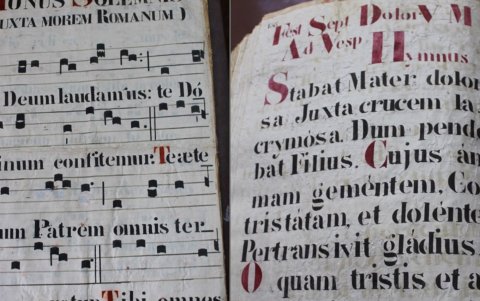 ONUS SOLEMN
UXTA MOREM ROMANUM )
Deum laudamus: te Dó
inum confitemur: Te æte
num Patrem omnis ter
Tibi omnes
Fest Sept Dolor V M
Ad Vesp Hymnus
Stabat Mater dolor
sa Juxta crucem la
crymósa, Dum pende
bat Filius. Cujus án
mam geméntem, Co
tristátam, et dolénte
Pertransivit gládius
O quam tristis et a